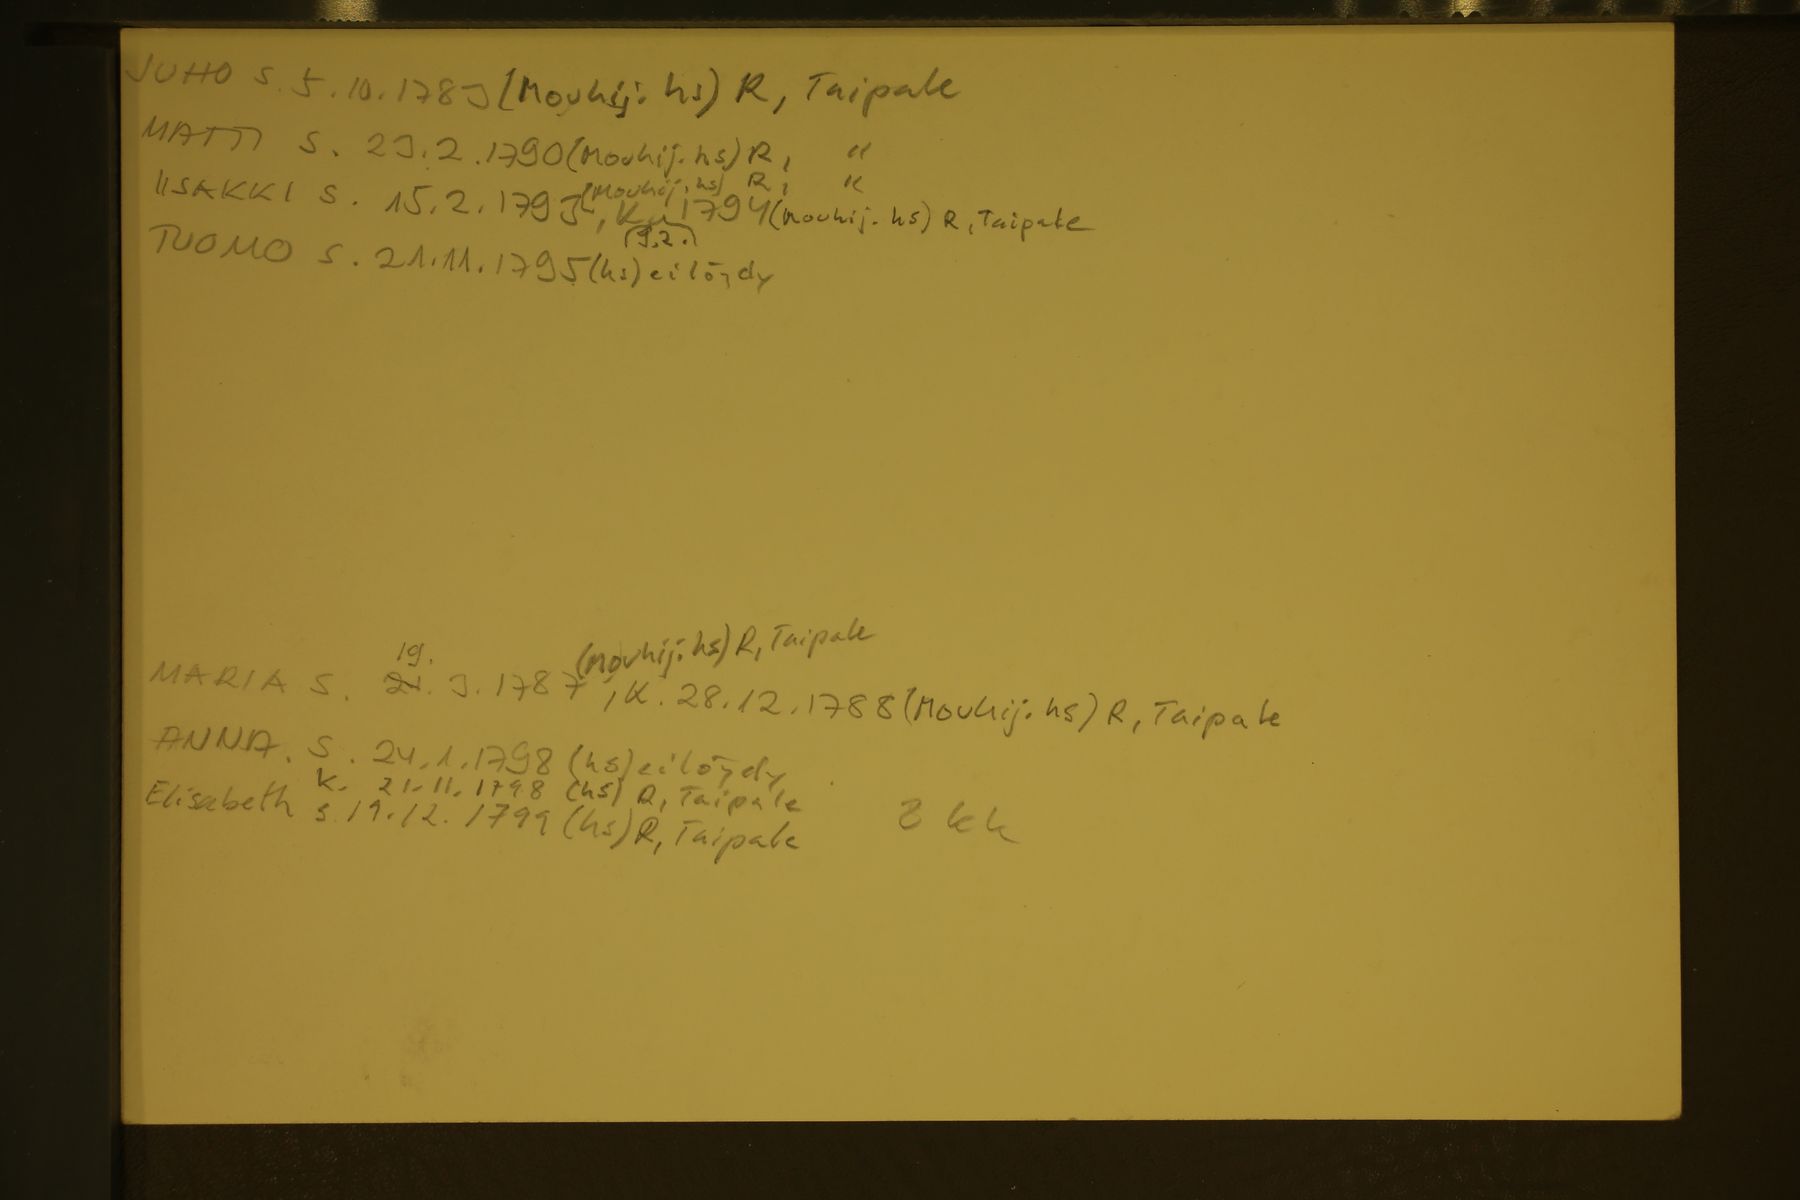 JUHO S. 5.10.1783 (Mouhij. hs) R, Taipale
MATTI S. 23.2.1790 (Mouhij. hs) R, "
(Mouhij. hs) R, "
IISAKKI S. 15.2.1793, K. 1794 (Mouhij. hs) R, Taipale
(9.2.)
TUOMO S. 21.11.1795 (hs) ei löydy
19. (Mouhij. hs) R, Taipale
MARIA S. 21. 3.1787, K. 28.12.1788 (Mouhij. hs) R, Taipale
ANNA. S. 24.1.1798 (hs) ei löydy
K. 21.11.1798 (hs) R, Taipale
Elisabeth s. 19.12.1799 (hs) R, Taipale
kk